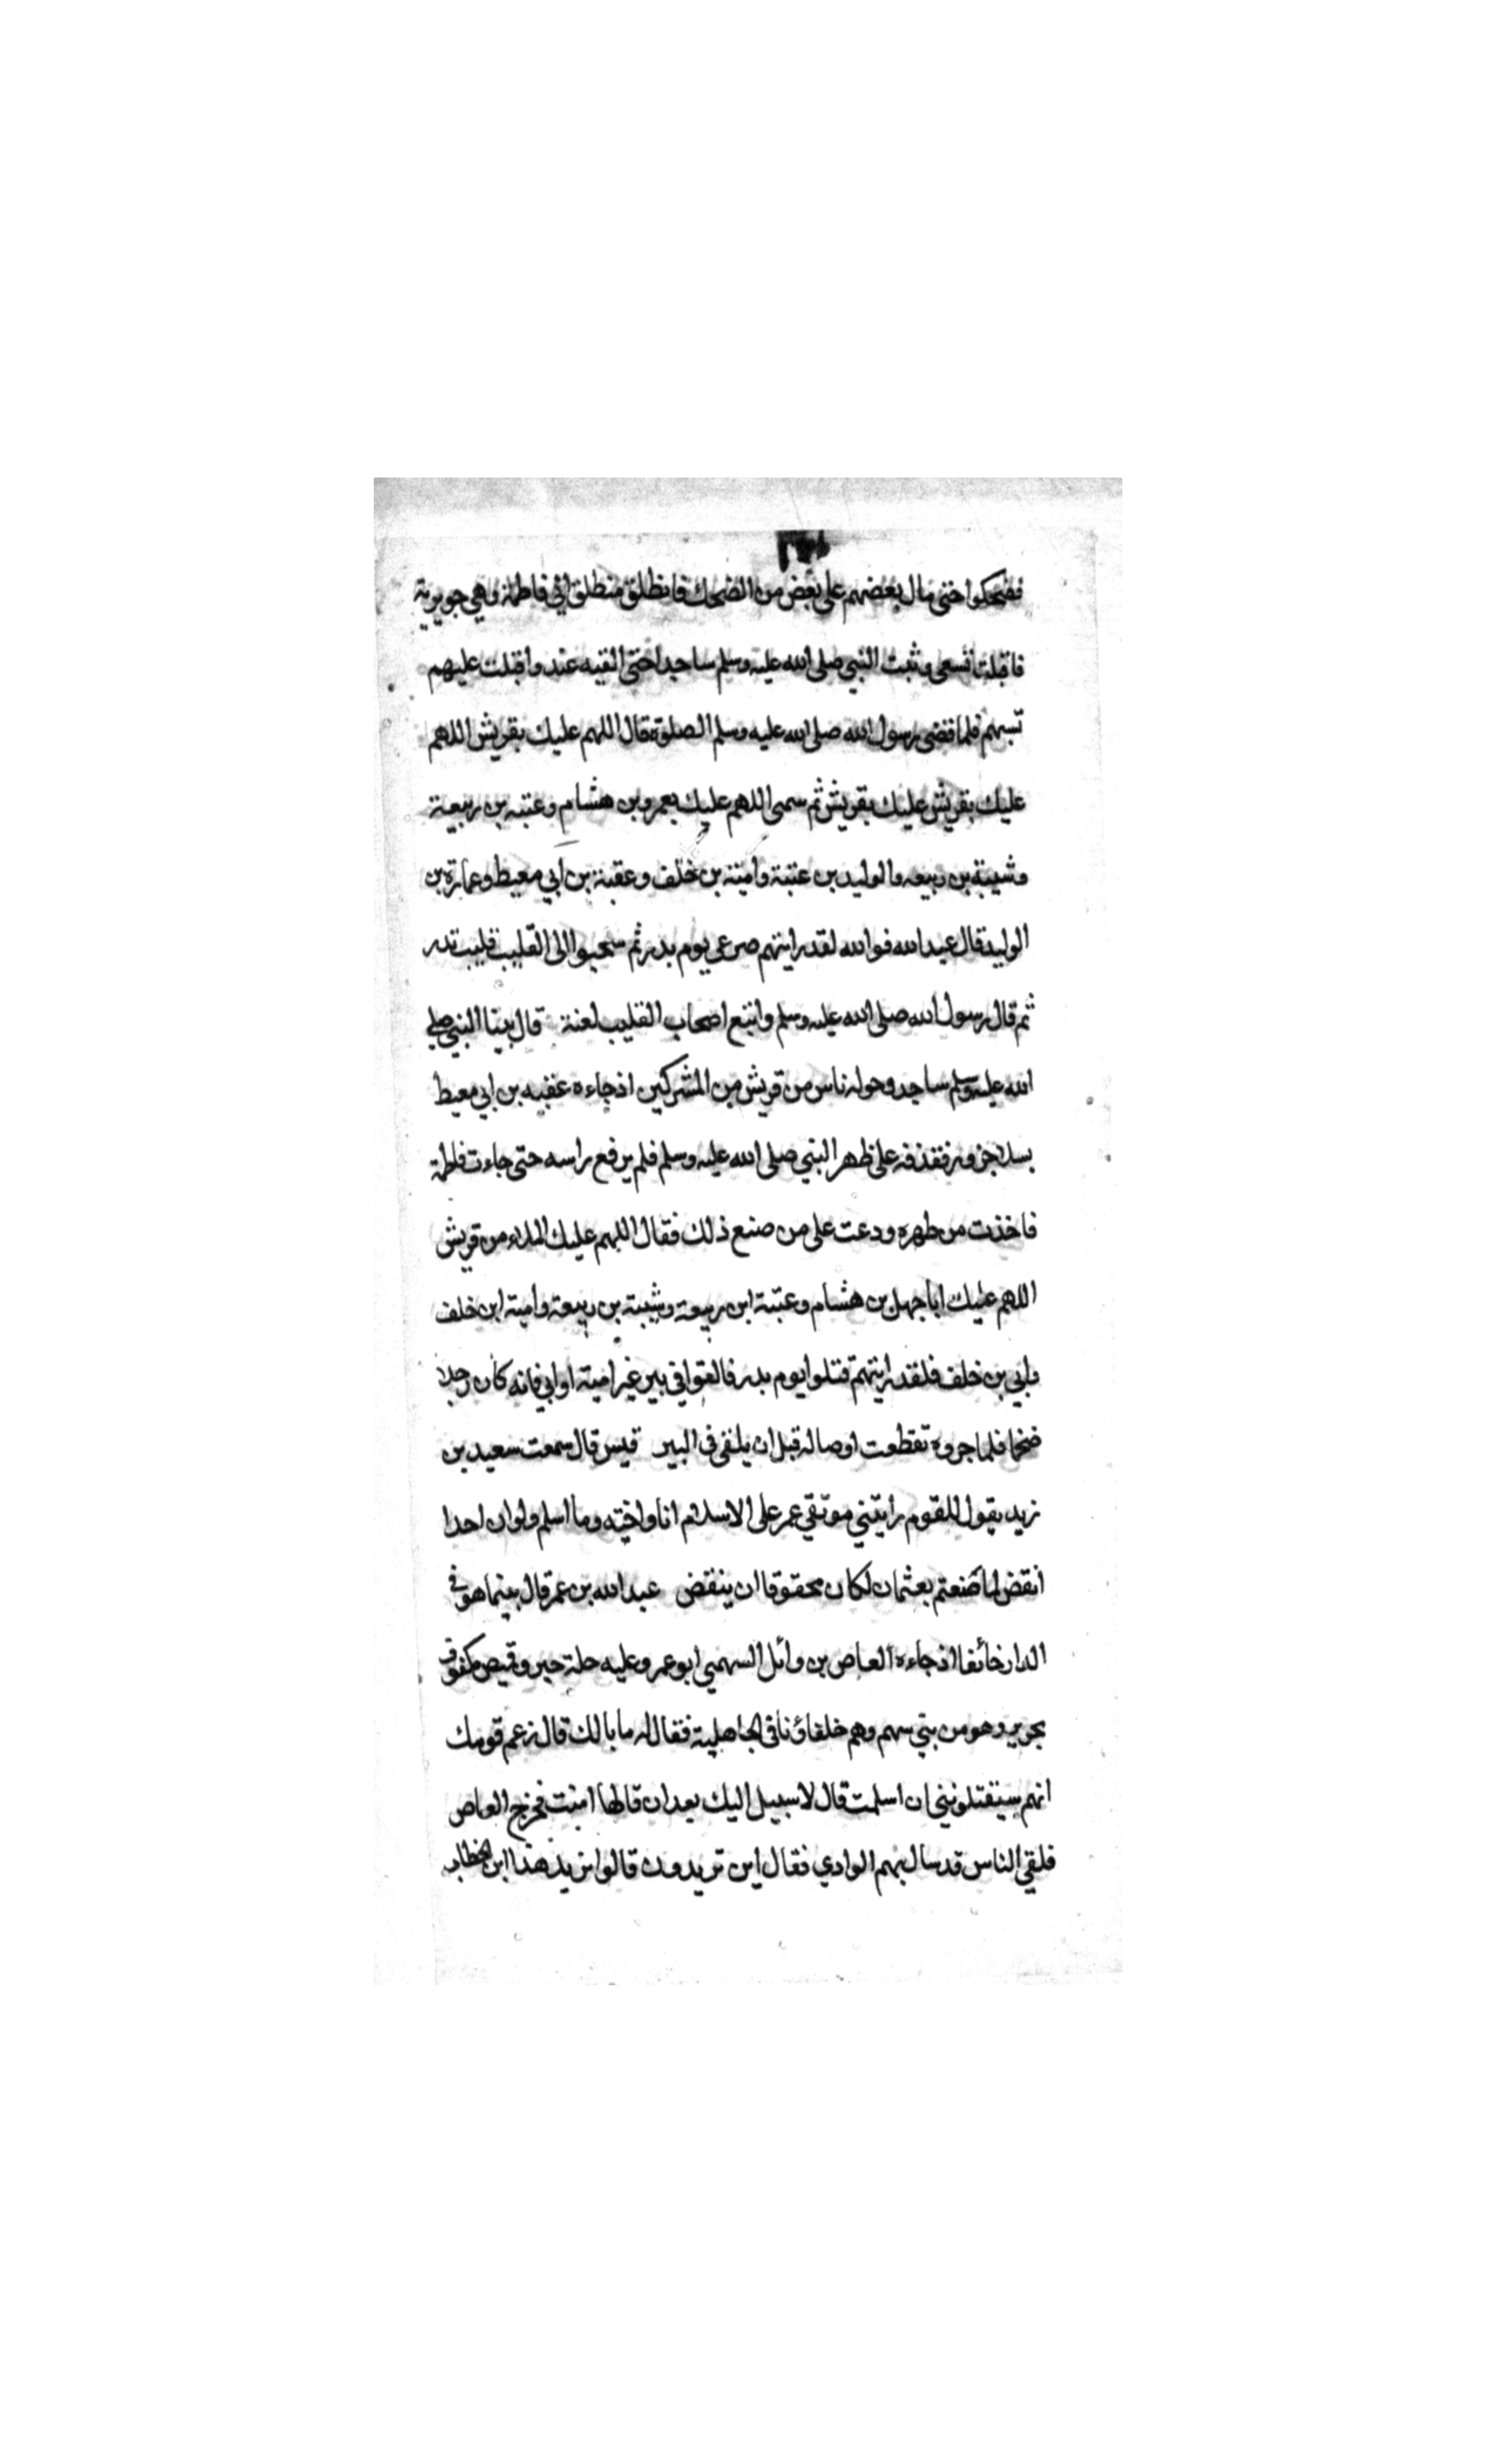 فضحكوا حتى مال بعضهم على بعض من الضحك فانطلق منطلق الى فاطمة وهي جويرية
فاقبلت تسعى وثبت النبي صلى الله عليه وسلم ساجدا حتى القيه عنه واقبلت عليهم
تسبهم فلما قضى رسول الله صلى الله عليه وسلم الصلوة قال اللهم عليك بقريش اللهم
عليك بقريش عليك بقريش ثم سمى اللهم عليك بعمرو بن هشام وعتبه بن ربيعة
وشيبة بن ربيعه والوليد بن عتبة وامية بن خلف وعقبة بن ابي معيط وعمارة بن
الوليد قال عبد الله فوالله لقد رايتهم صرعى يوم بدر ثم سحبوا الى القليب قليب بدر
ثم قال رسول الله صلى الله عليه وسلم واتبع اصحاب القليب لعنة قال بينا النبي صلى
الله عليه وسلم ساجد وحوله ناس من قريش من المشركين اذ جاءه عقبه بن ابي معيط
بسلا جزور فقذفه على ظهر النبي صلى الله عليه وسلم فلم يرفع راسه حتى جاءت فاطمة
فاخذت من ظهره ودعت على من صنع ذلك فقال اللهم عليك الملاء من قريش
اللهم عليك ابا جهل بن هشام وعتبة ابن ربيعة وشيبة بن ربيعة وامية ابن خلف
وابي بن خلف فلقد رايتهم قتلوا يوم بدر فالقوا في بير غير امية او ابي فانه كان رجلا
ضخما فلما جروه تقطعت اوصاله قبل ان يلقى في البير قيس قال سمعت سعيد بن
زيد يقول للقوم رايتني موثقي عمر على الاسلام انا واخته وما اسلم ولو ان احدا
انقض لما صنعتم بعثمان لكان محقوقا ان ينقض عبد الله بن عمر قال بينما هو في
الدار خائفا اذ جاءه العاص بن وائل السهمي ابو عمرو عليه حلة حبر وقميص مكفوف
بحرير وهو من بني سهم وهم حلفاؤنا في الجاهلية فقال له ما بالك قال زعم قومك
انهم سيقتلونني ان اسلمت قال لا سبيل اليك بعد ان قالها امنت فخرج العاص
فلقي الناس قد سال بهم الوادي فقال اين تريدون قالوا نريد هذا ابن الخطاب